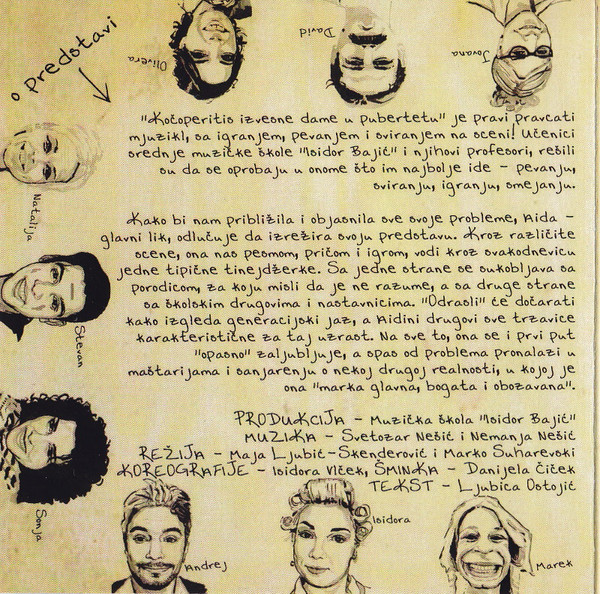 o predstavi
Olivera
David
Jovana
"Kočoperitis izvesne dame u pubertetu" je pravi pravcati
mjuzikl, sa igranjem, pevanjem i sviranjem na sceni! Učenici
srednje muzičke škole "Isidor Bajić" i njihovi profesori, rešili
su da se oprobaju u onome što im najbolje ide - pevanju,
sviranju, igranju, smejanju.
Natalija
Kako bi nam približila i objasnila sve svoje probleme, Aida -
glavni lik, odlučuje da izrežira svoju predstavu. Kroz različite
scene, ona nas pesmom, pričom i igrom, vodi kroz svakodnevicu
jedne tipične tinejdžerke. Sa jedne strane se sukobljava sa
porodicom, za koju misli da je ne razume, a sa druge strane
sa školskim drugovima i nastavnicima. "Odrasli" će dočarati
kako izgleda generacijski jaz, a Aidini drugovi sve trzavice
karakteristične za taj uzrast. Na sve to, ona se i prvi put
"opasno" zaljubljuje, a spas od problema pronalazi u
maštarijama i sanjarenju o nekoj drugoj realnosti, u kojoj je
ona "marka glavna, bogata i obozavana".
Stevan
PRODUKCIJA - Muzička škola "Isidor Bajić"
MUZIKA - Svetozar Nešić i Nemanja Nešić
REŽIJA - Maja Ljubić-Skenderović i Marko Suharevski
KOREOGRAFIJE - Isidora Vlček, ŠMINKA - Danijela Čiček
TEKST - Ljubica Ostojić
Sonja
Andrej
Isidora
Marek